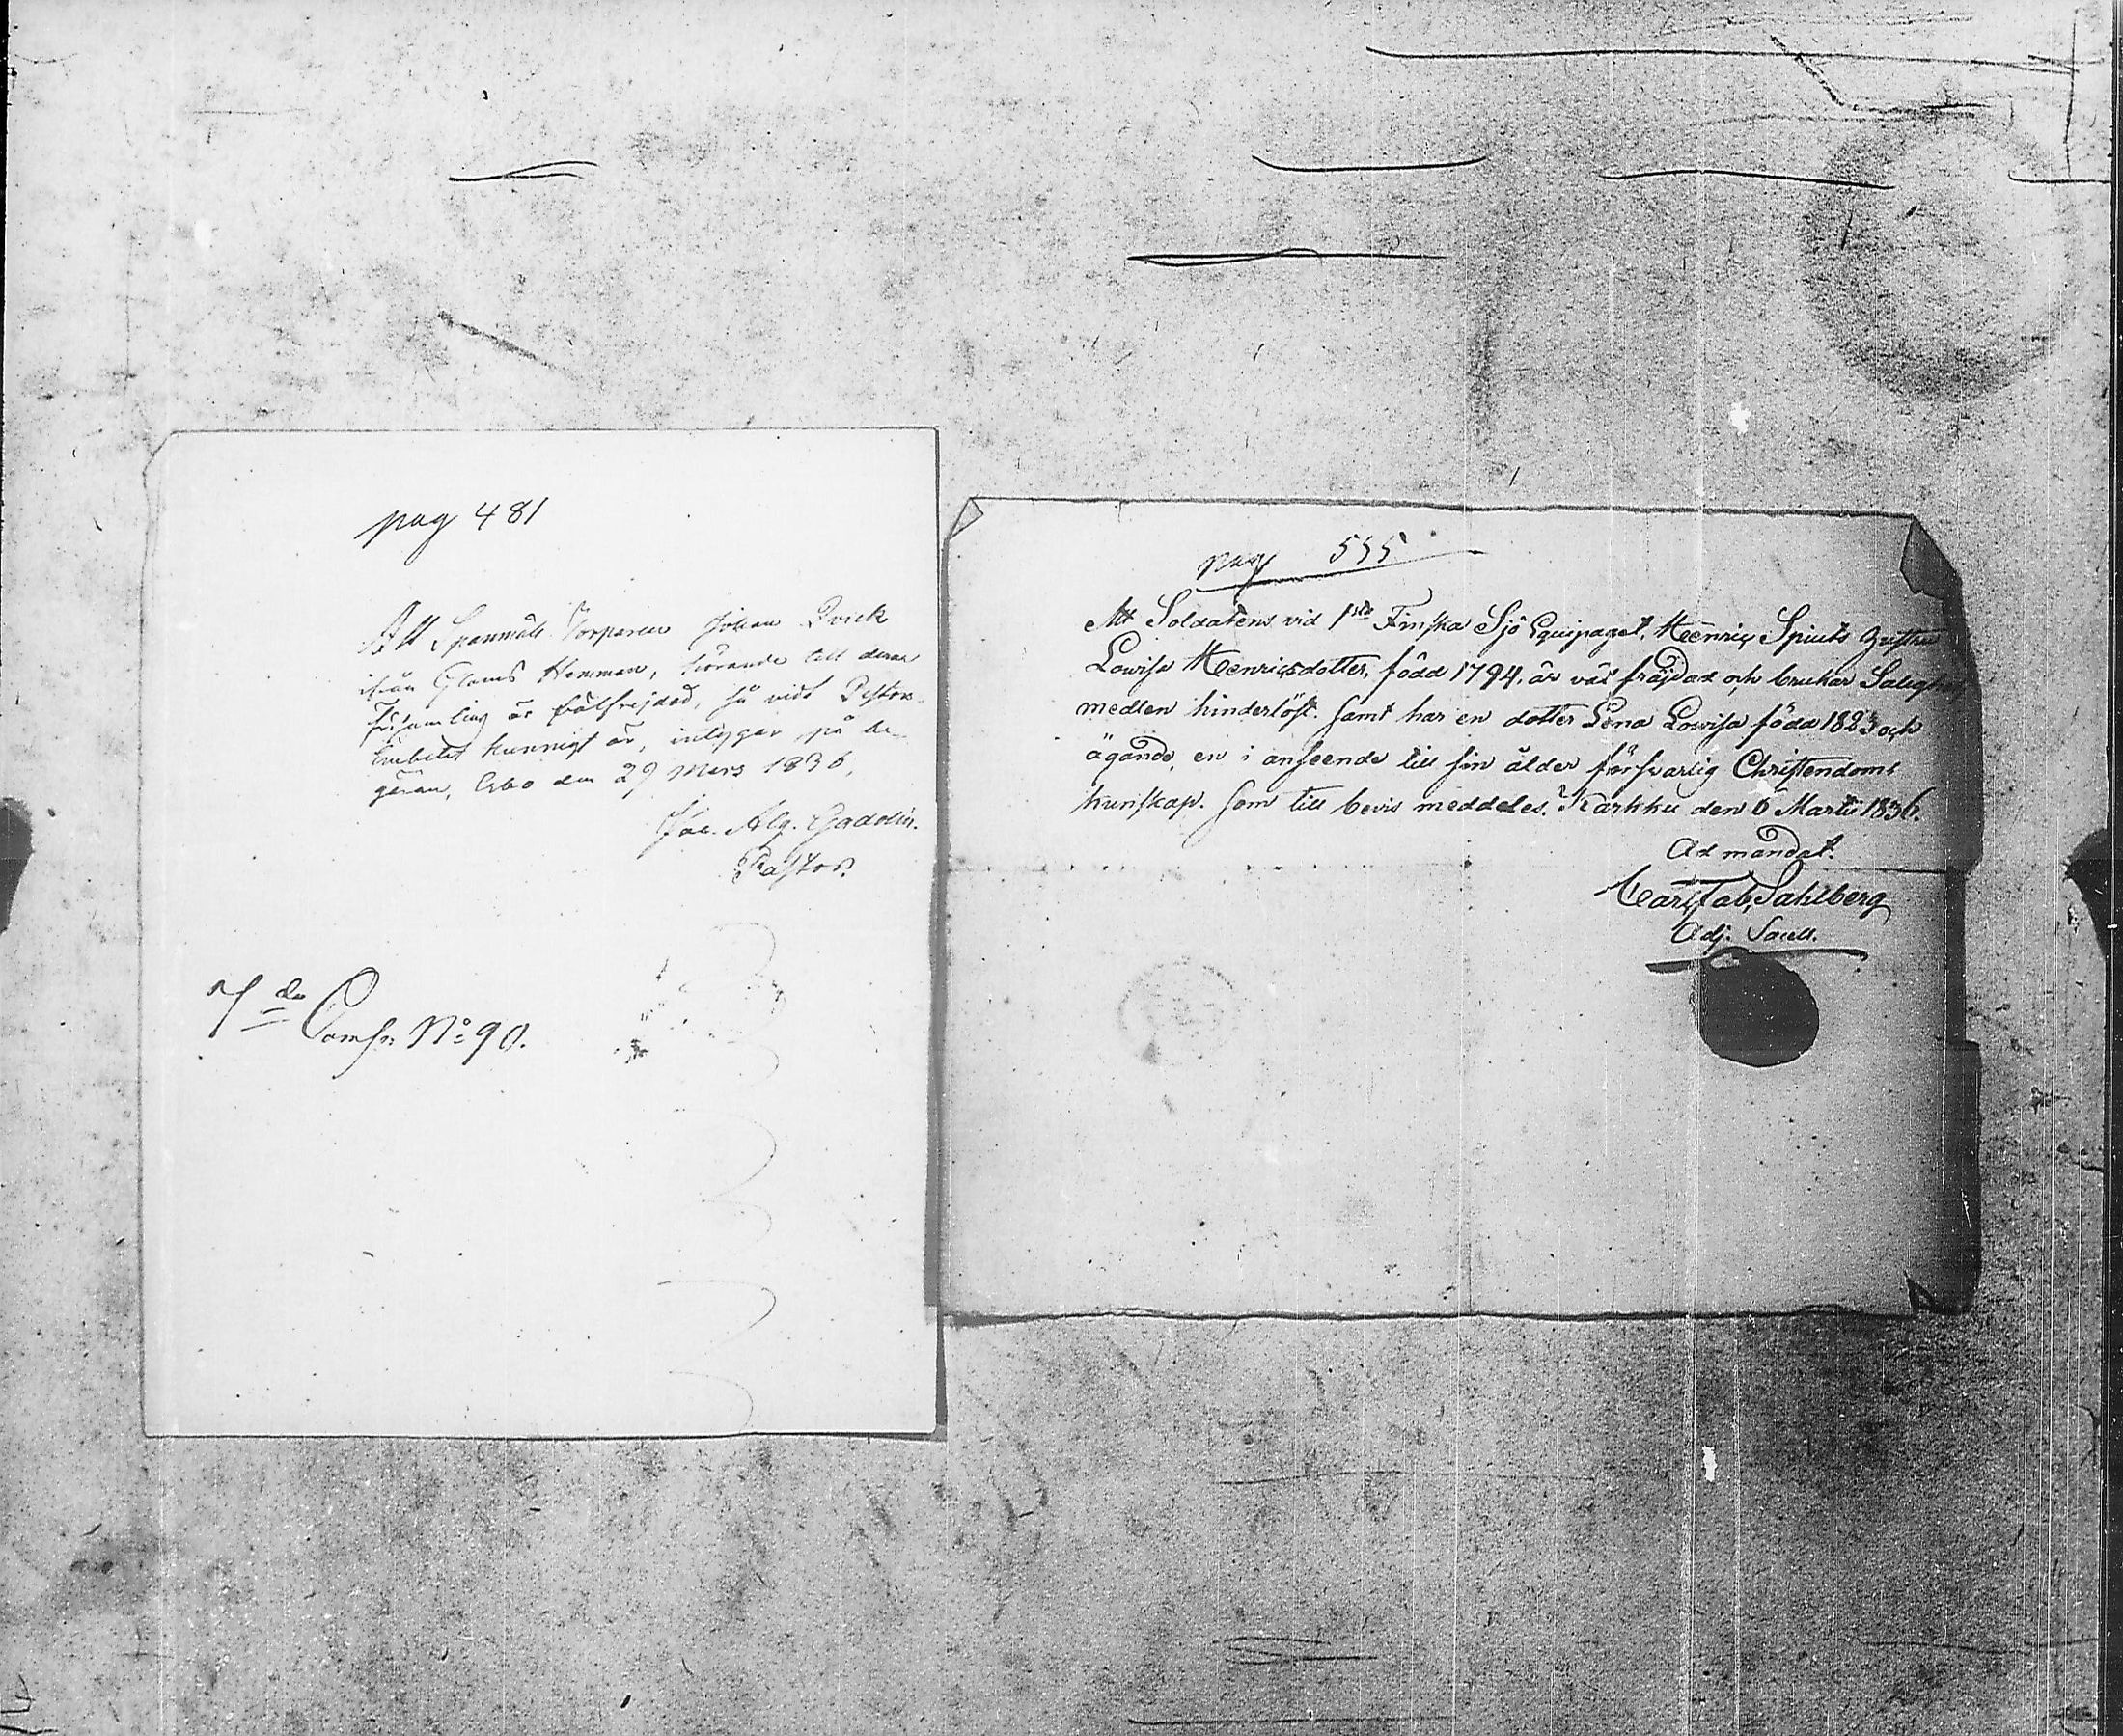 pag 481
Att Spanmåls Torparen Johan Qvick
ifrån Gloms Hemman, hörande till denna
Församling är välfrejdad, så vidt Pastors
Embetet kunnigt är, intygar på be-
gäran, Esbo den 29 Mars 1836,
Jac. Alg. Gadolin.
Pastor.
7de Comp. No 90.
pag 555
Att Soldatens vid 1sta Finska Sjö Equipaget, Henric Spiuts hustru
Lowisa Henricsdotter, född 1794, är väl fräjdad och brukar Salighets
medlen hinderlöst. samt har en dotter Lena Lowisa född 1823 och
ägande, en i anseende till sin ålder försvarlig Christendoms
kunskap. som till bevis meddeles. Karkku den 6 Martii 1836.
Ad mandat.
Sahlberg
Adj. Sacell.